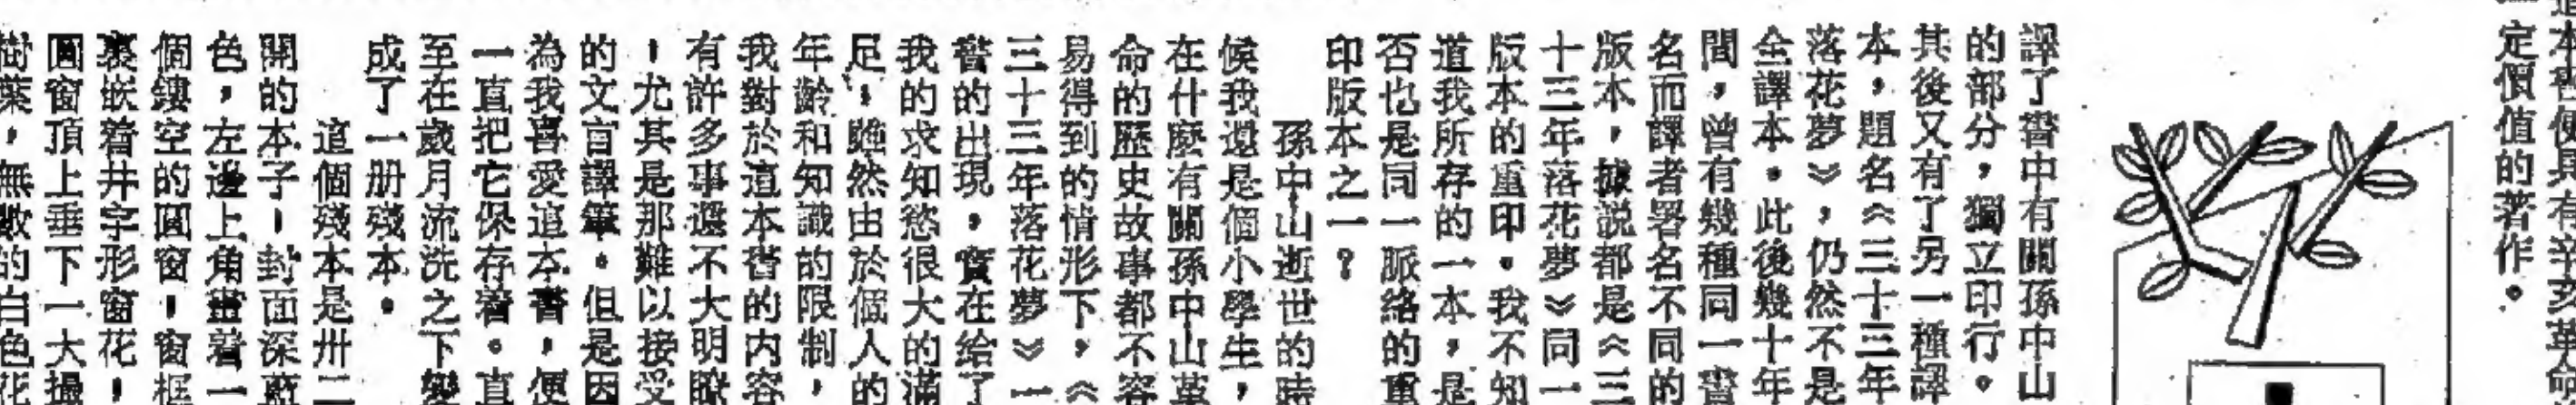 這本書便具有辛亥革命
定價值的著作。
譯了書中有關孫中山
的部分，獨立印行。
其後又有了另一種譯
本，題名《三十三年
落花夢》，仍然不是
全譯本。此後幾十年
間，曾有幾種同一書
名而譯者署名不同的
版本，據說都是《三
十三年落花夢》同一
版本的重印。我不知
道我所存的一本，是
否也是同一脈絡的重
印版本之一？
孫中山逝世的時
候我還是個小學生，
在什麼有關孫中山革
命的歷史故事都不容
易得到的情形下，《
三十三年落花夢》一
書的出現，實在給了
我的求知慾很大的滿
足，雖然由於個人的
年齡和知識的限制，
我對於這本書的內容
有許多事還不大明瞭
，尤其是那難以接受
的文言譯筆。但是因
為我喜愛這本書，便
一直把它保存着。直
至在歲月流洗之下變
成了一册殘本。
這個殘本是卅二
開的本子，封面深藍
色，左邊上角畫着一
個鏤空的圓窗，窗框
裏嵌着井字形窗花，
圓窗頂上垂下一大撮
樹葉，無數的白色花